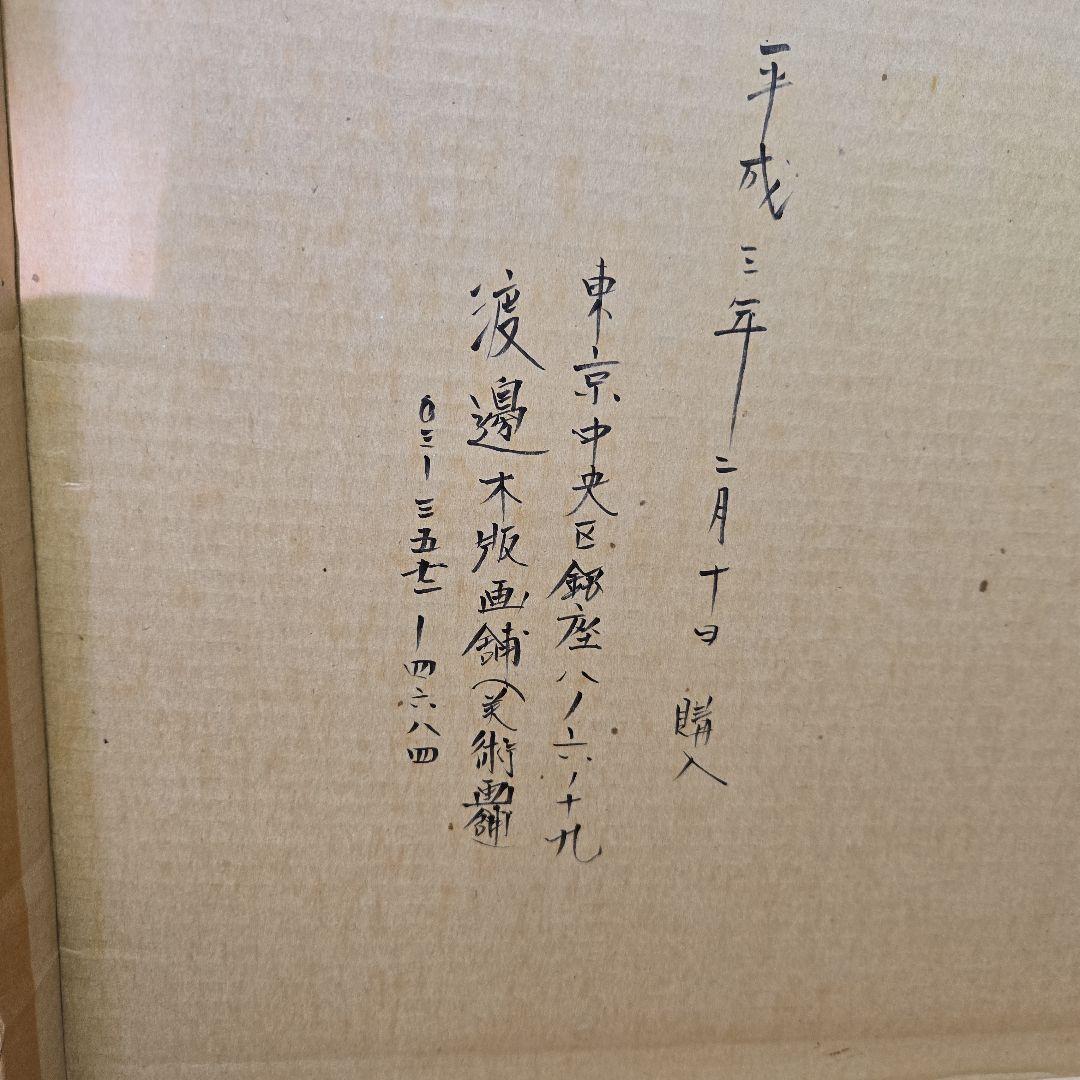 平成三年二月十日 購入
東京中央区銀座八ノ六ノ十九
渡邊木版画舗(美術画舗
〇三-三五七一-四六八四